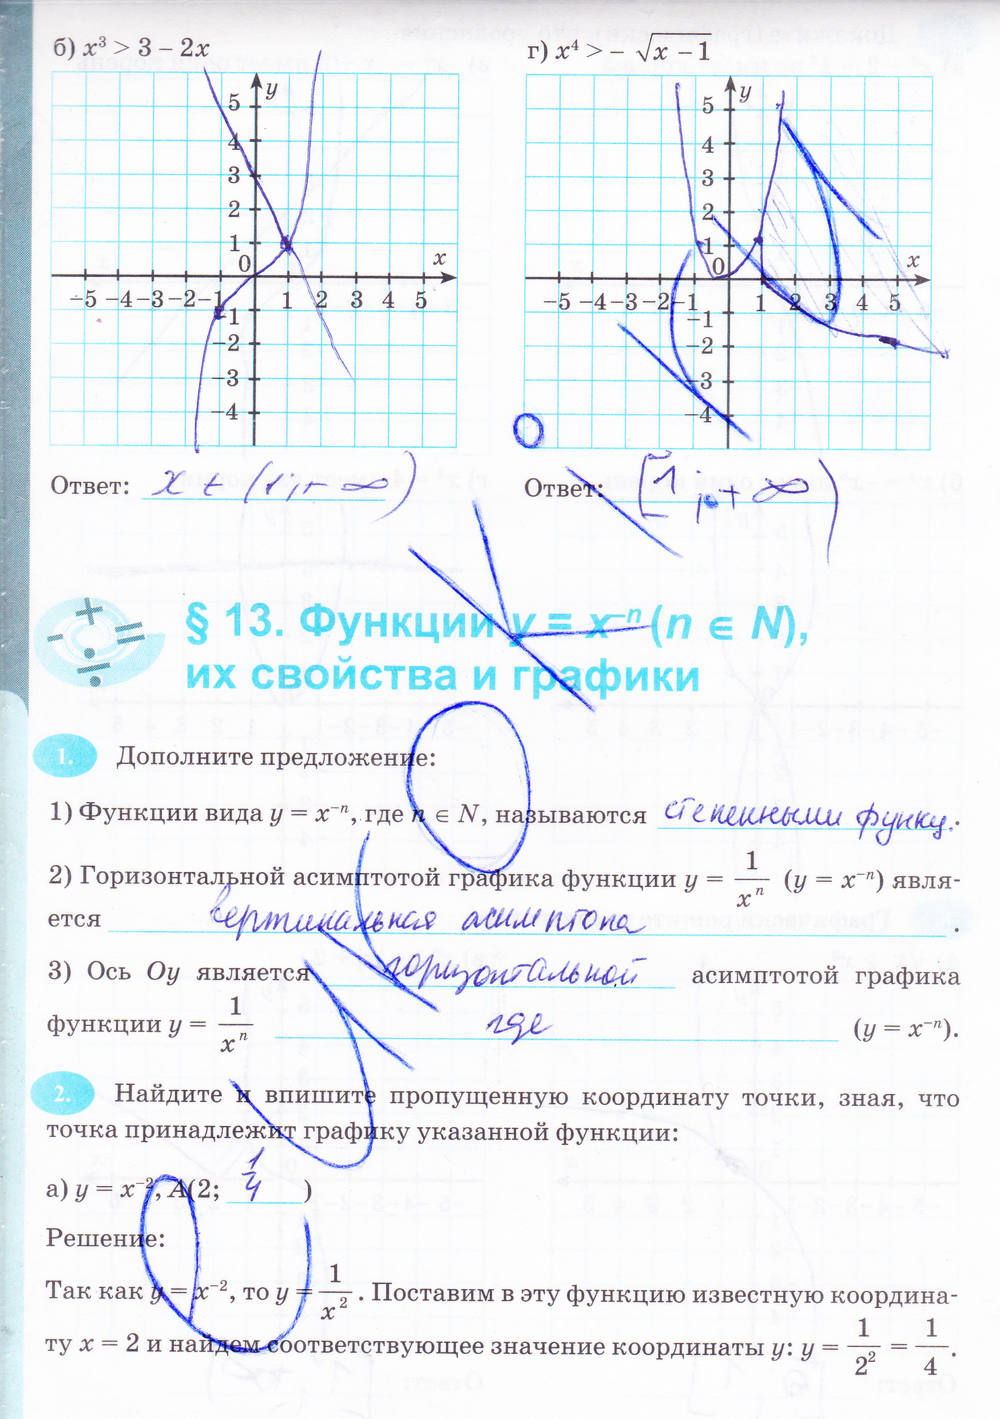 б) x³ > 3 − 2x
г) x⁴ > − √(x − 1)
y
5
4
3
2
1
0
x
−5 −4 −3 −2 −1 1 2 3 4 5
−1
−2
−3
−4
y
5
4
3
2
1
0
x
−5 −4 −3 −2 −1 1 2 3 4 5
−1
−2
−3
−4
Ответ: x ∈ (1; + ∞)
Ответ: [1; + ∞)
§ 13. Функции y = x⁻ⁿ (n ∈ N),
их свойства и графики
1. Дополните предложение:
1) Функции вида y = x⁻ⁿ, где n ∈ N, называются степенными функц.
2) Горизонтальной асимптотой графика функции y = 1/xⁿ (y = x⁻ⁿ) явля-
ется вертикальная асимптота .
3) Ось Oy является горизонтальной асимптотой графика
функции y = 1/xⁿ где (y = x⁻ⁿ).
2. Найдите и впишите пропущенную координату точки, зная, что
точка принадлежит графику указанной функции:
а) y = x⁻², A(2; 1/4)
Решение:
Так как y = x⁻², то y = 1/x². Поставим в эту функцию известную координа-
ту x = 2 и найдем соответствующее значение координаты y: y = 1/2² = 1/4.